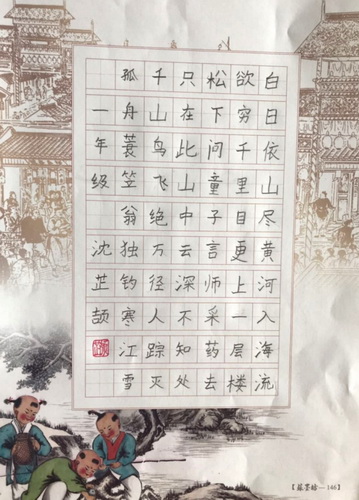 白日依山尽黄河入海流
欲穷千里目更上一层楼
松下问童子言师采药去
只在此山中云深不知处
千山鸟飞绝万径人踪灭
孤舟蓑笠翁独钓寒江雪
一年级 沈芷颉
146